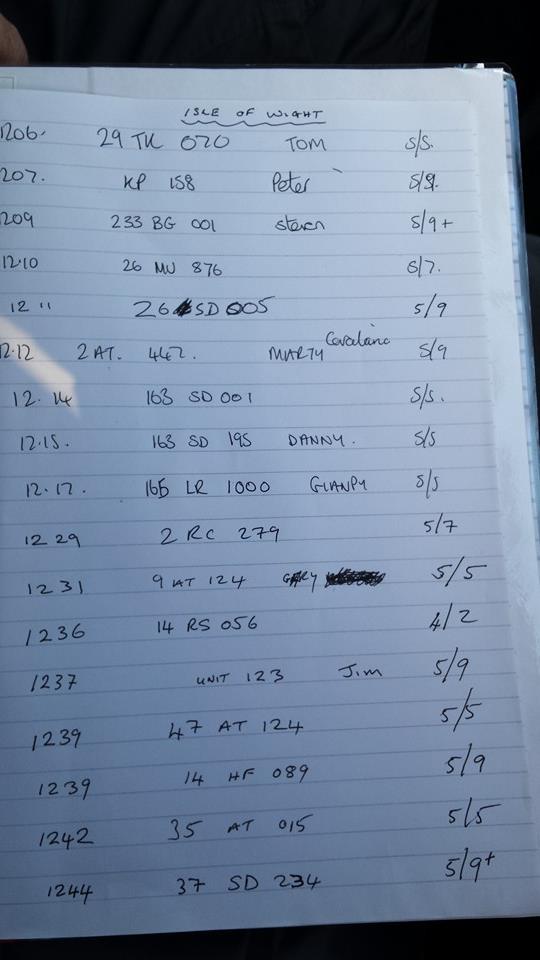 ISLE OF WIGHT
1206. 29 TK 070 TOM 5/5.
1207. KP 158 Peter 5/9.
1209 233 BG 001 Steven 5/9+
12.10 26 MU 876 5/7.
12 11 26 SD 005 5/9
12.12 2 AT. 442. MARTY 5/9
12.14 163 SD 001 5/5.
12.15. 163 SD 195 DANNY. 5/5
12.17. 165 LR 1000 5/5
12 29 2 RC 279 5/7
1231 9 AT 124 GARY 5/5
1236 14 RS 056 4/2
1237 UNIT 123 JIM 5/9
1239 47 AT 124 5/5
1239 14 HF 089 5/9
1242 35 AT 015 5/5
1244 37 SD 234 5/9+